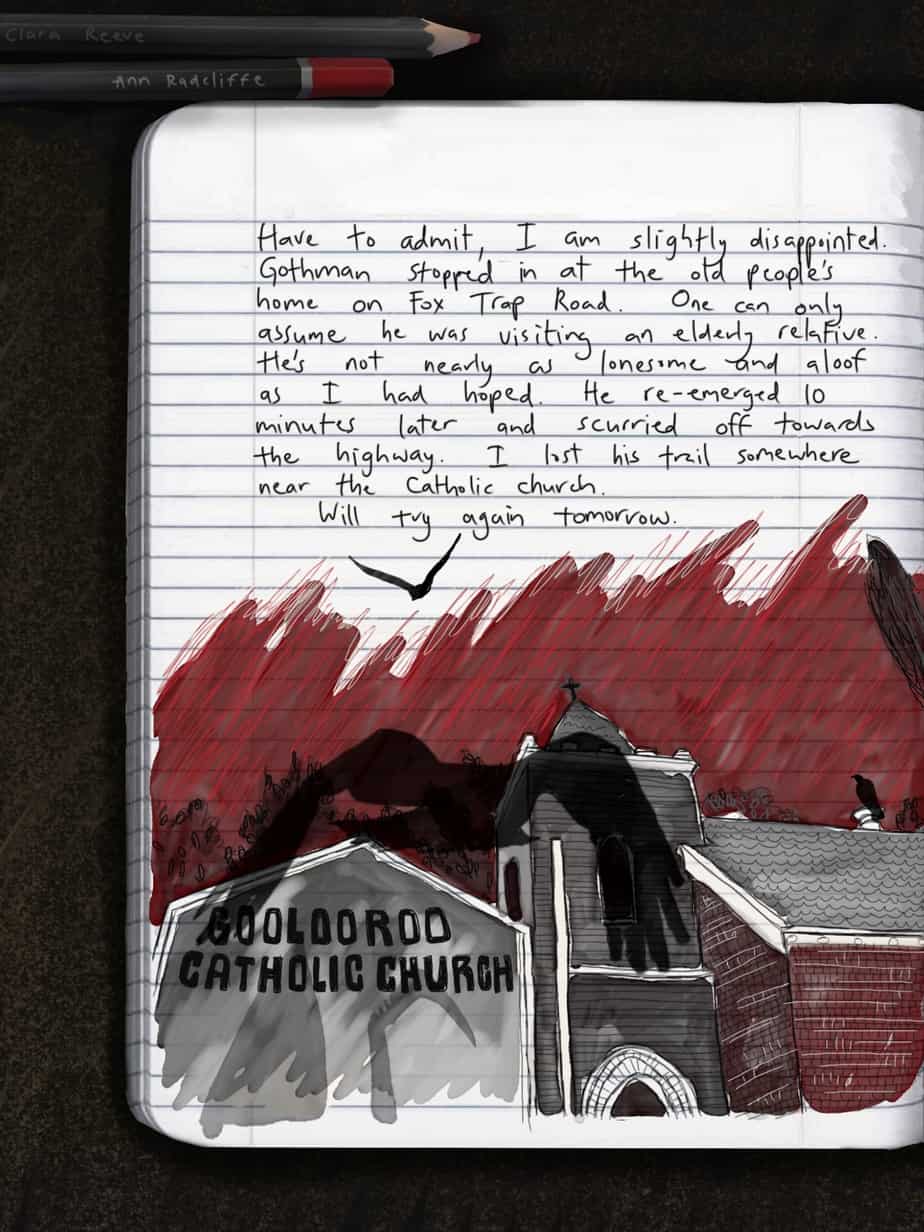 Clara Reeve
Ann Radcliffe
Have to admit, I am slightly disappointed.
Gothman stopped in at the old people's
home on Fox Trap Road. One can only
assume he was visiting an elderly relative.
He's not nearly as lonesome and aloof
as I had hoped. He re-emerged 10
minutes later and scurried off towards
the highway. I lost his trail somewhere
near the Catholic church.
Will try again tomorrow.
GOOLOOROO
CATHOLIC CHURCH